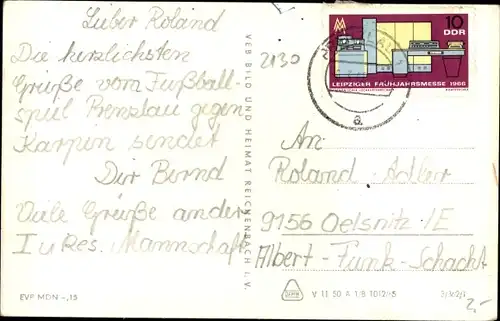 Lieber Roland
Die herzlichsten
Grüße vom Fußball-
spiel Prenzlau gegen
Karpin sendet
Dir Bernd
Viele Grüße an der
I u Res. Mannschaft
EVP MDN -,15
VEB BILD UND HEIMAT REICHENBACH I. V.
2130
10
DDR
LEIPZIGER FRÜHJAHRSMESSE 1966
a
An
Roland Adler
9156 Oelsnitz /E
Albert-Funk-Schacht
V 11 50 A 1/B 1012/65
2,-